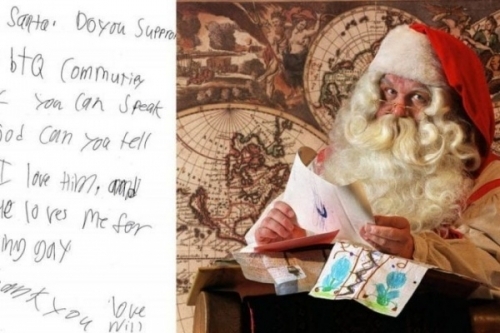 Santa. Do you Suppor
btQ Community
you can Speak
od can you tell
I love Him, and
He loves me for
ing gay
ank you love
Will